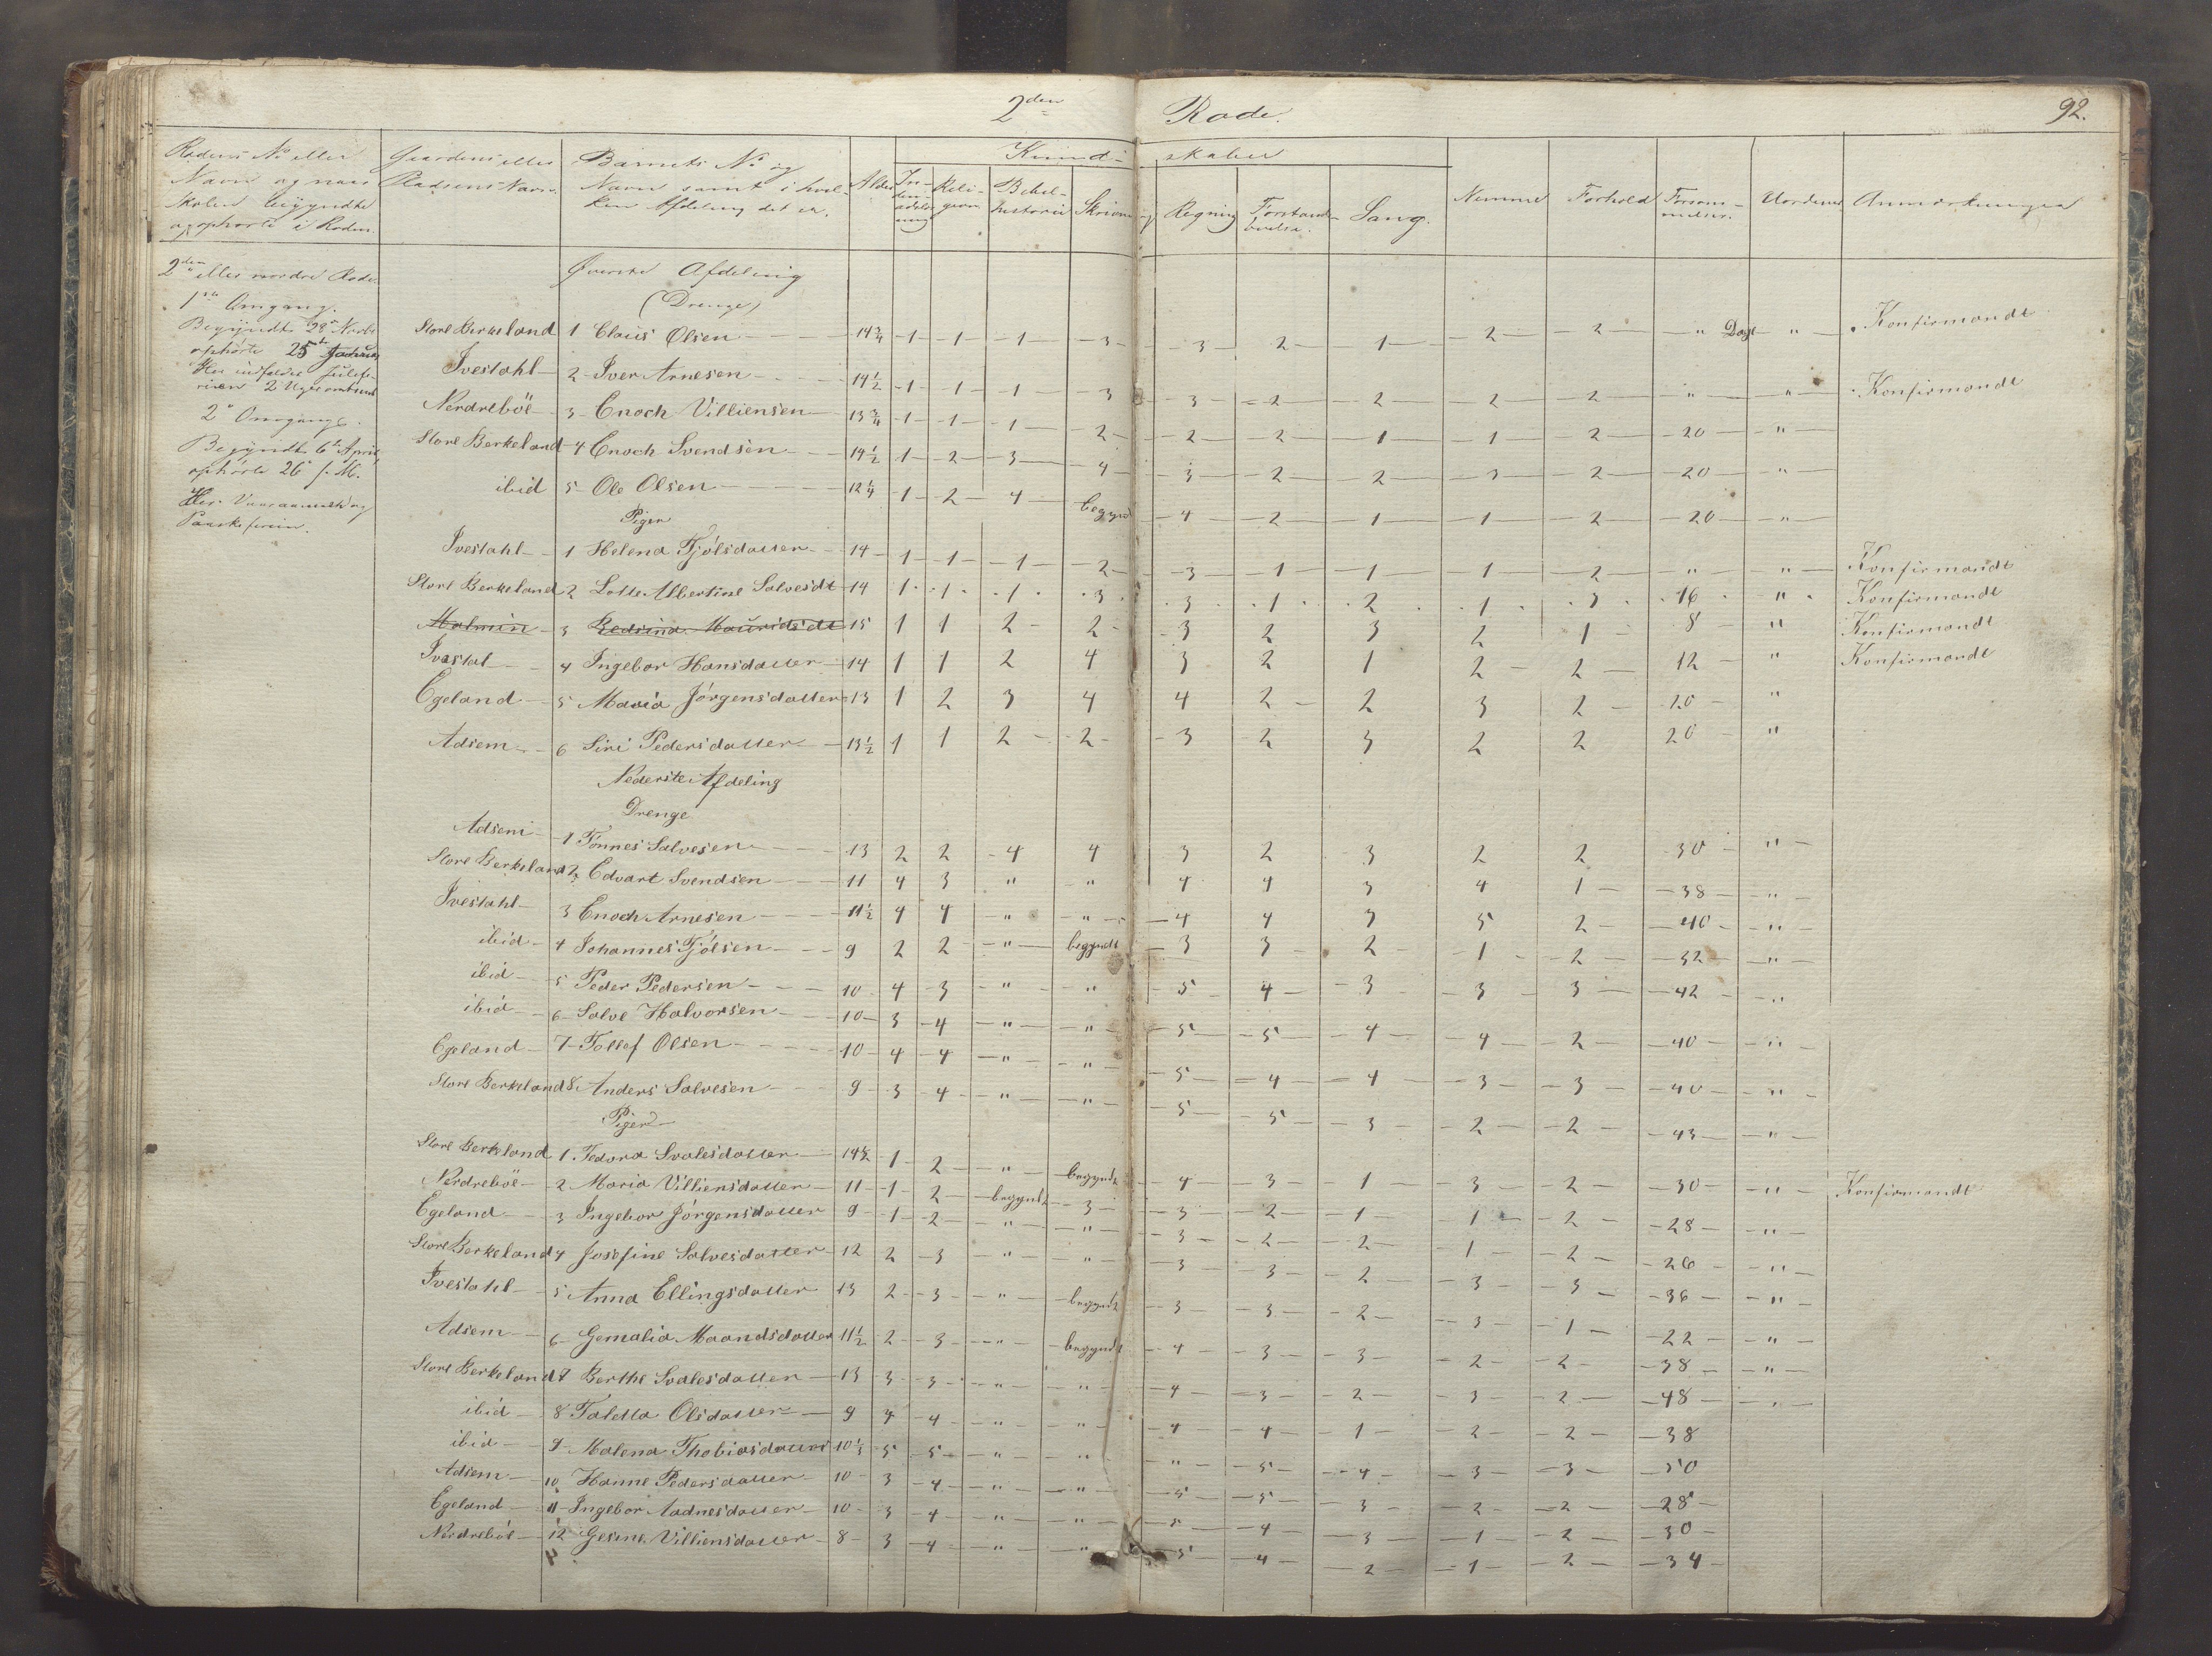 2den Rode. 92.
Rodens No eller Navn og naar Skolen begyndte og ophørte i Roden.
Gaardens eller Pladsens Navn.
Barnets No og Navn samt i hvilken Afdeling det er.
Alder
Kundskaber
Religion Bibelhistorie Skrivning Regning Forstandsøvelse. Sang.
Nemme Forhold Forsømmelser. Uordener Anmærkninger
2den eller nordre Rode.
1ste Omgang.
Begyndt 28
ophørte 25
2 Omgang.
Begyndt 6te April
ophørte 26 s. M.
Øverste Afdeling
(Drenge)
Store Berkeland 1 Claus Olsen 14 3/4 1 1 1 3 3 2 1 2 2 " Dage " Konfirmandt
Ivestahl 2 Iver Arnesen 14 1/2 1 1 1 3 3 2 2 2 2 " " Konfirmandt
Nerdreböe 3 Enoch Villiensen 13 3/4 1 1 1 2 2 2 1 1 2 20 "
Store Berkeland 4 Enoch Svendsen 14 1/2 1 2 3 4 3 2 2 3 2 20 "
ibid 5 Ole Olsen 12 1/4 1 2 4 begynd 4 2 1 1 2 20 "
Piger
Ivestahl 1 Helena Tjölsdatter 14 1 1 1 2 3 1 1 1 2 " " Konfirmandt
Store Berkeland 2 Lotte Albertine Salvesdt 14 1 1 1 3 3 1 2 1 3 16 " Konfirmandt
Malmin 3 Bedsina Mauridsdt 15 1 1 2 2 3 2 3 2 1 8 " Konfirmandt
Ivestal 4 Ingebor Hansdatter 14 1 1 2 4 3 2 1 2 2 12 " Konfirmandt
Egeland 5 Maria Jörgensdatter 13 1 2 3 4 4 2 2 3 2 20 "
Adsem 6 Siri Pedersdatter 13 1/2 1 1 2 2 3 2 3 2 2 20 "
Nederste Afdeling
Drenge
Adsem 1 Tönnes Salvesen 13 2 2 4 4 3 2 3 2 2 30 "
Store Berkeland 2 Edvart Svendsen 11 4 3 " " 4 4 3 4 1 38 "
Ivestahl 3 Enoch Arnesen 11 1/2 4 4 " " 4 4 3 5 2 40 "
ibid 4 Johannes Tjölsen 9 2 2 " begyndt 3 3 2 1 2 32 "
ibid 5 Peder Pedersen 10 4 3 " " 5 4 3 3 3 42 "
ibid 6 Salve Halvorsen 10 3 4 " " 5 5 4 4 2 40 "
Egeland 7 Tollef Olsen 10 4 4 " " 5 4 4 3 3 40 "
Store Berkeland 8 Anders Salvesen 9 3 4 " " 5 5 3 2 2 43 "
Piger
Store Berkeland 1 Tedora Svalesdatter 14 1/2 1 2 " begyndt 4 3 1 3 2 30 " Konfirmandt
Nerdreböe 2 Maria Villiensdatter 11 1 2 begyndt 3 3 2 1 1 2 28 "
Egeland 3 Ingebor Jörgensdatter 9 1 2 " " 3 2 2 1 2 26 "
Store Berkeland 4 Josefine Salvesdatter 12 2 3 " " 3 3 2 3 3 36 "
Ivestahl 5 Anna Ellingsdatter 13 2 3 " begyndt 3 3 2 3 1 22 "
Adsem 6 Gemalia Maandsdatter 11 1/2 2 3 " begyndt 4 3 3 2 2 38 "
Store Berkeland 7 Berthe Svalesdatter 13 3 3 " " 4 3 2 3 2 48 "
ibid 8 Taletta Olsdatter 9 4 4 " " 4 4 1 2 2 38
ibid 9 Malena Thobiasdatter 10 1/2 5 5 " " " 5 4 3 3 50
Adsem 10 Hanne Pedersdatter 10 3 4 " " 5 5 3 2 2 28
Egeland 11 Ingebor Aadnesdatter 10 3 4 " " 5 4 3 1 2 30
Nerdreböe 12 Gesine Villiensdatter 8 3 4 " " 5 4 2 1 2 34